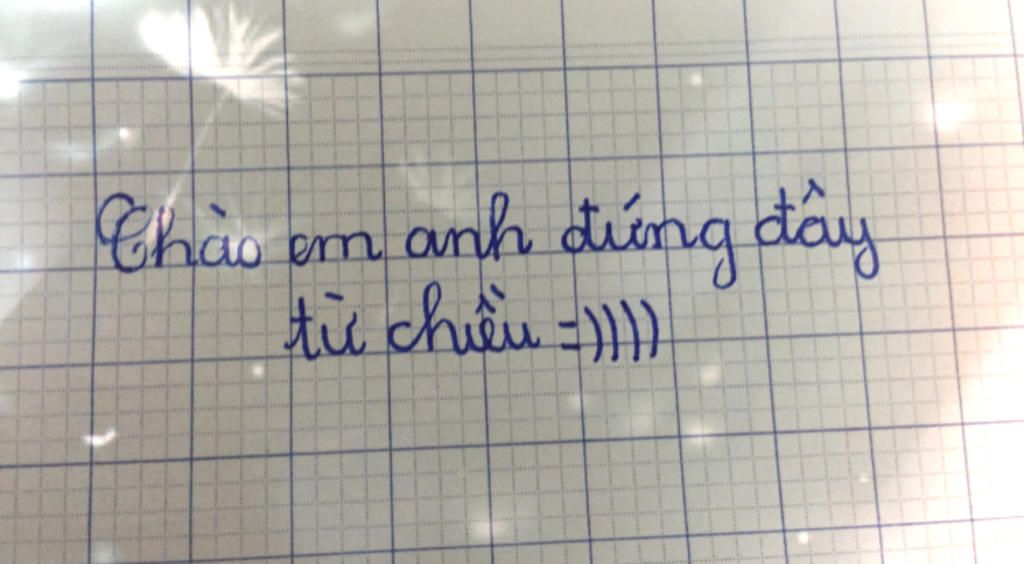 Chào em anh đứng đây
từ chiều =))))